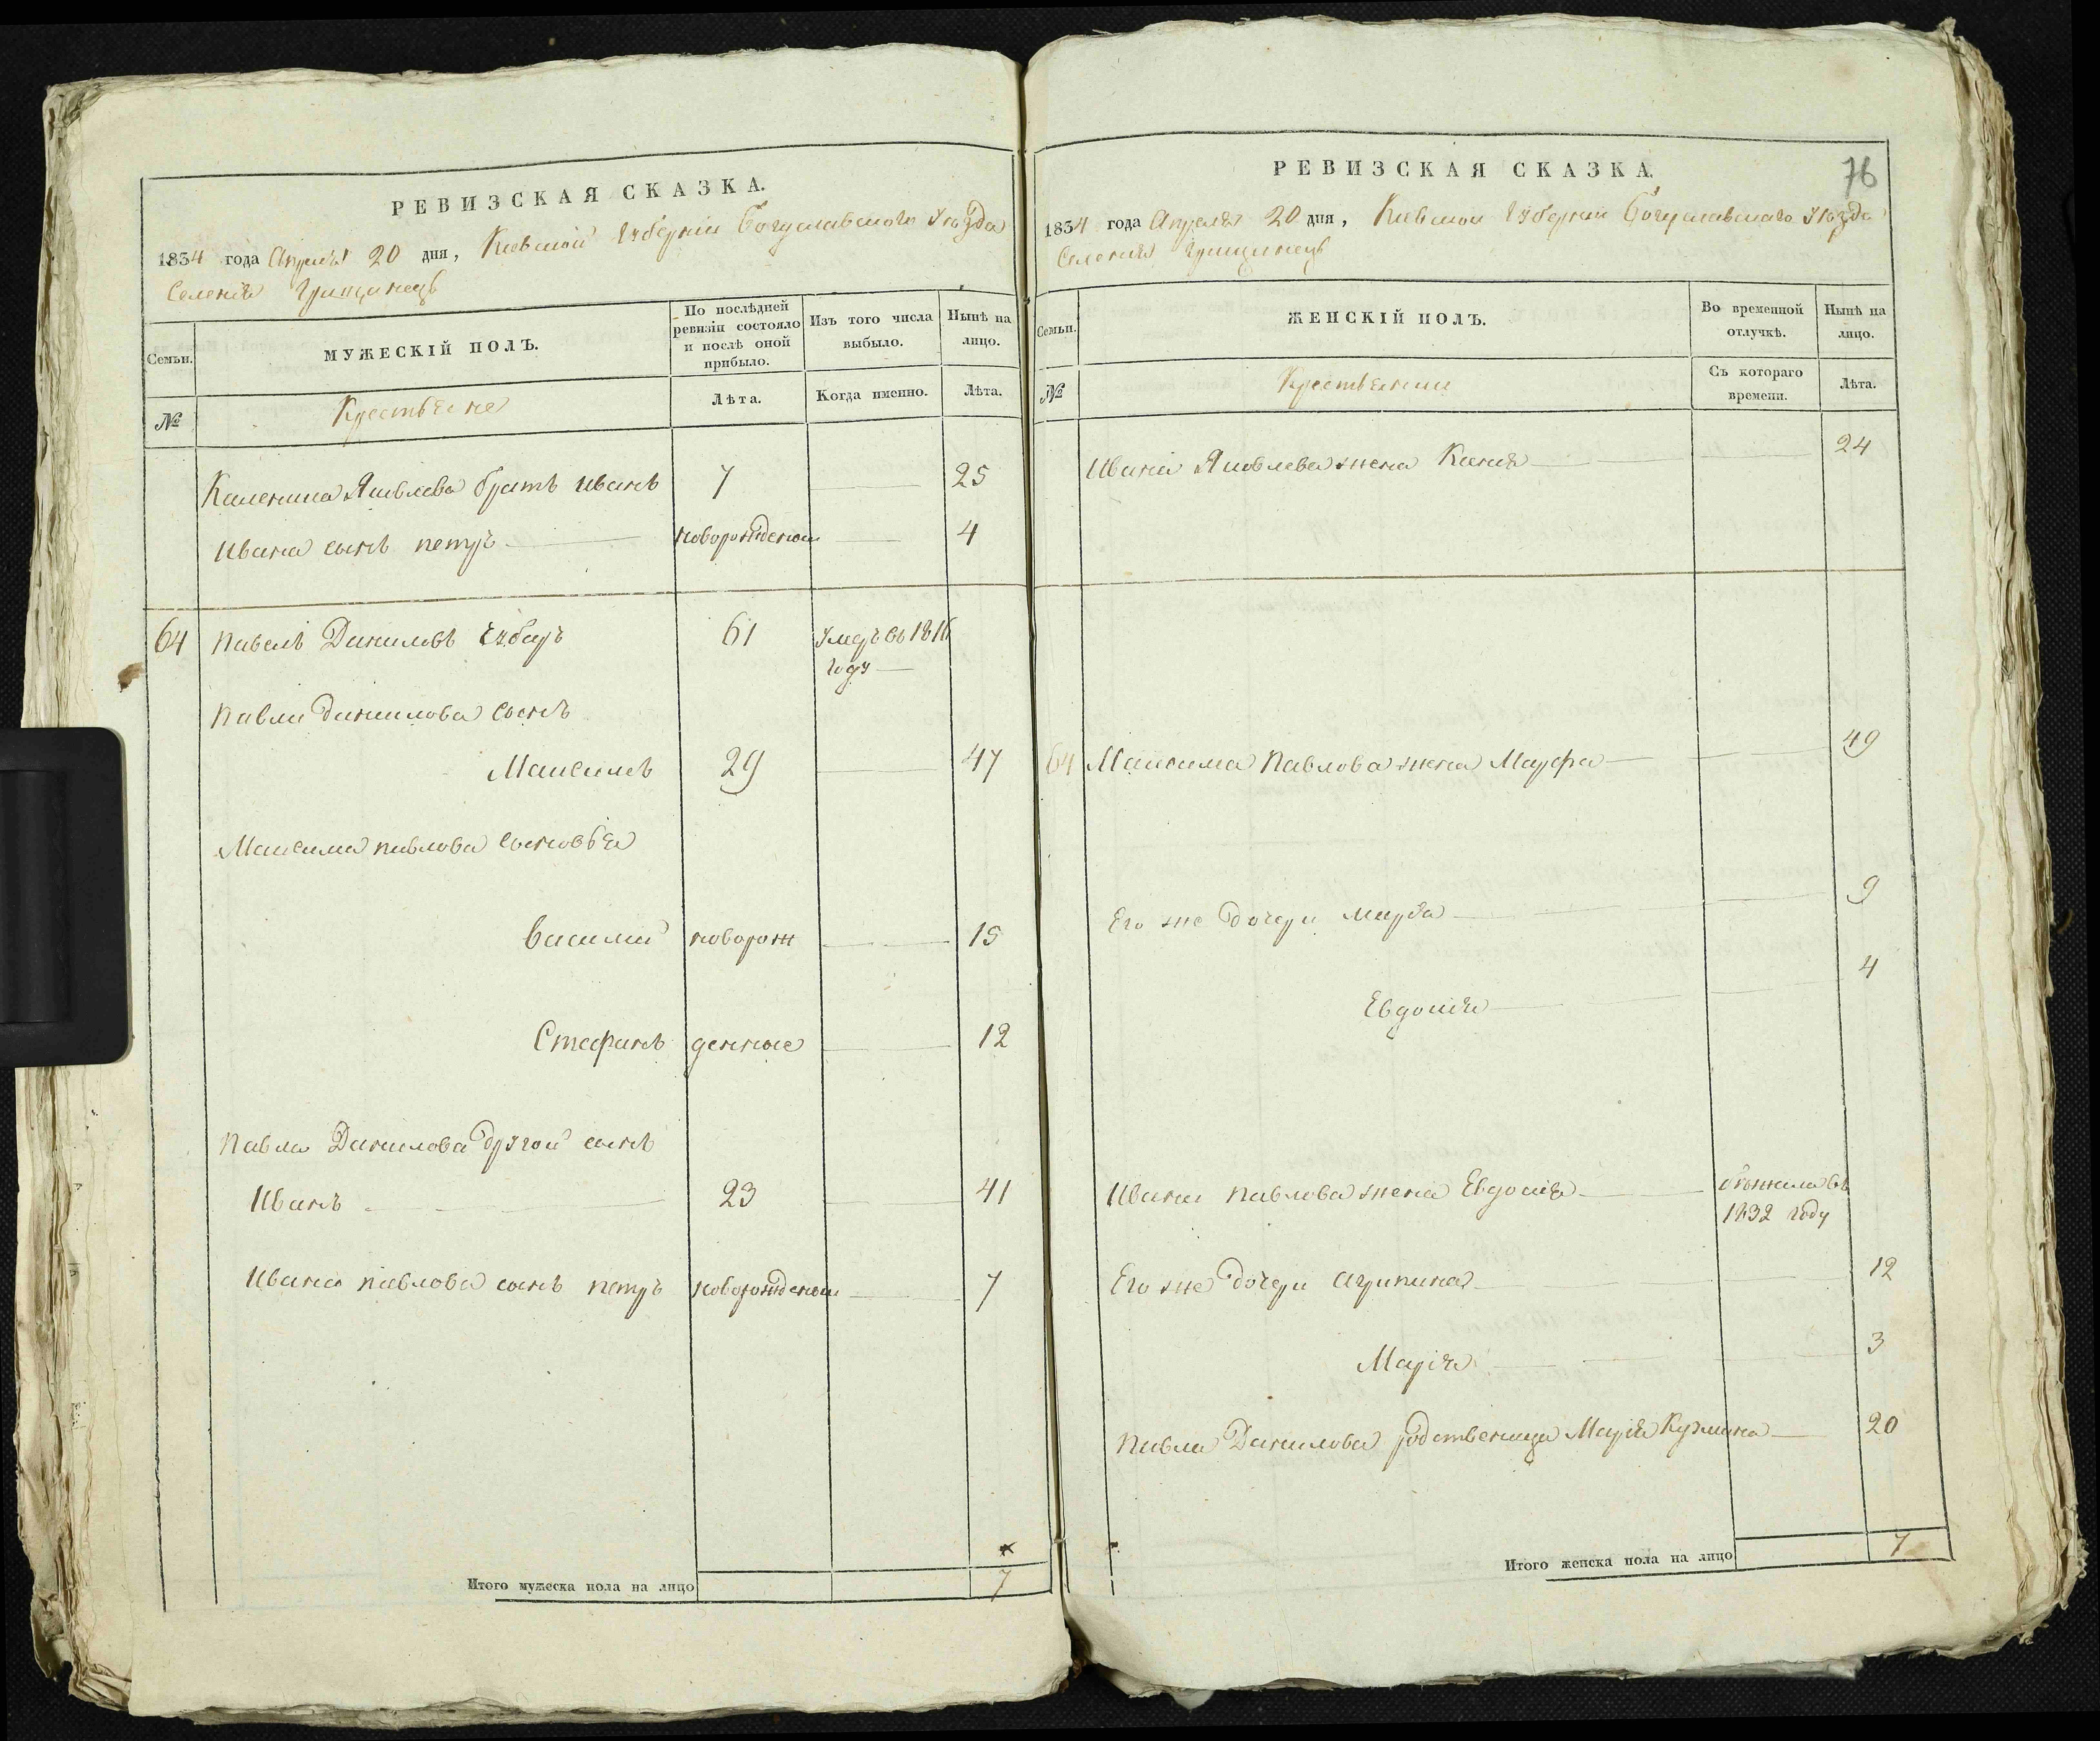 РЕВИЗСКАЯ СКАЗКА.
1834 года Апреля 20 дня, Киевской Губернии Богуславского Уезда
Селения Грищинець
Семьи.
МУЖЕСКІЙ ПОЛЪ.
По послѣдней ревизіи состояло и послѣ оной прибыло.
Изъ того числа выбыло.
Нынѣ на лицо.
№
Крестьяне
Лѣта.
Когда именно.
Лѣта.
Каленика Яковлева братъ Иванъ 7 25
Ивана сынъ петръ новорожденои 4
64 павелъ Даниловъ 61 Умеръ въ 1816
году
павла данилова сынъ
Максимъ 29 47
Максима павлова сыновья
Василий новорож 15
Стефанъ денные 12
павла Данилова другой сынъ
Иванъ 23 41
Ивана павлова сынъ петръ новорожденои 7
Итого мужеска пола на лицо 7
РЕВИЗСКАЯ СКАЗКА.
76
1834 года Апреля 20 дня, Киевской Губернии Богуславского Уезда
Селения Грищинець
Семьи.
ЖЕНСКІЙ ПОЛЪ.
Во временной отлучкѣ.
Нынѣ на лицо.
№
Крестьянки
Съ котораго времени.
Лѣта.
Ивана Яковлева жена Ксения 24
64 Максима павлова жена Марфа 49
Его же дочери марфа 9
Евдокия 4
Ивана павлова жена Евдокия бежала въ
1832 году
Его же дочери агрипина 12
Марія 3
павла Данилова родственица Марія Кузмина 20
Итого женска пола на лицо 7